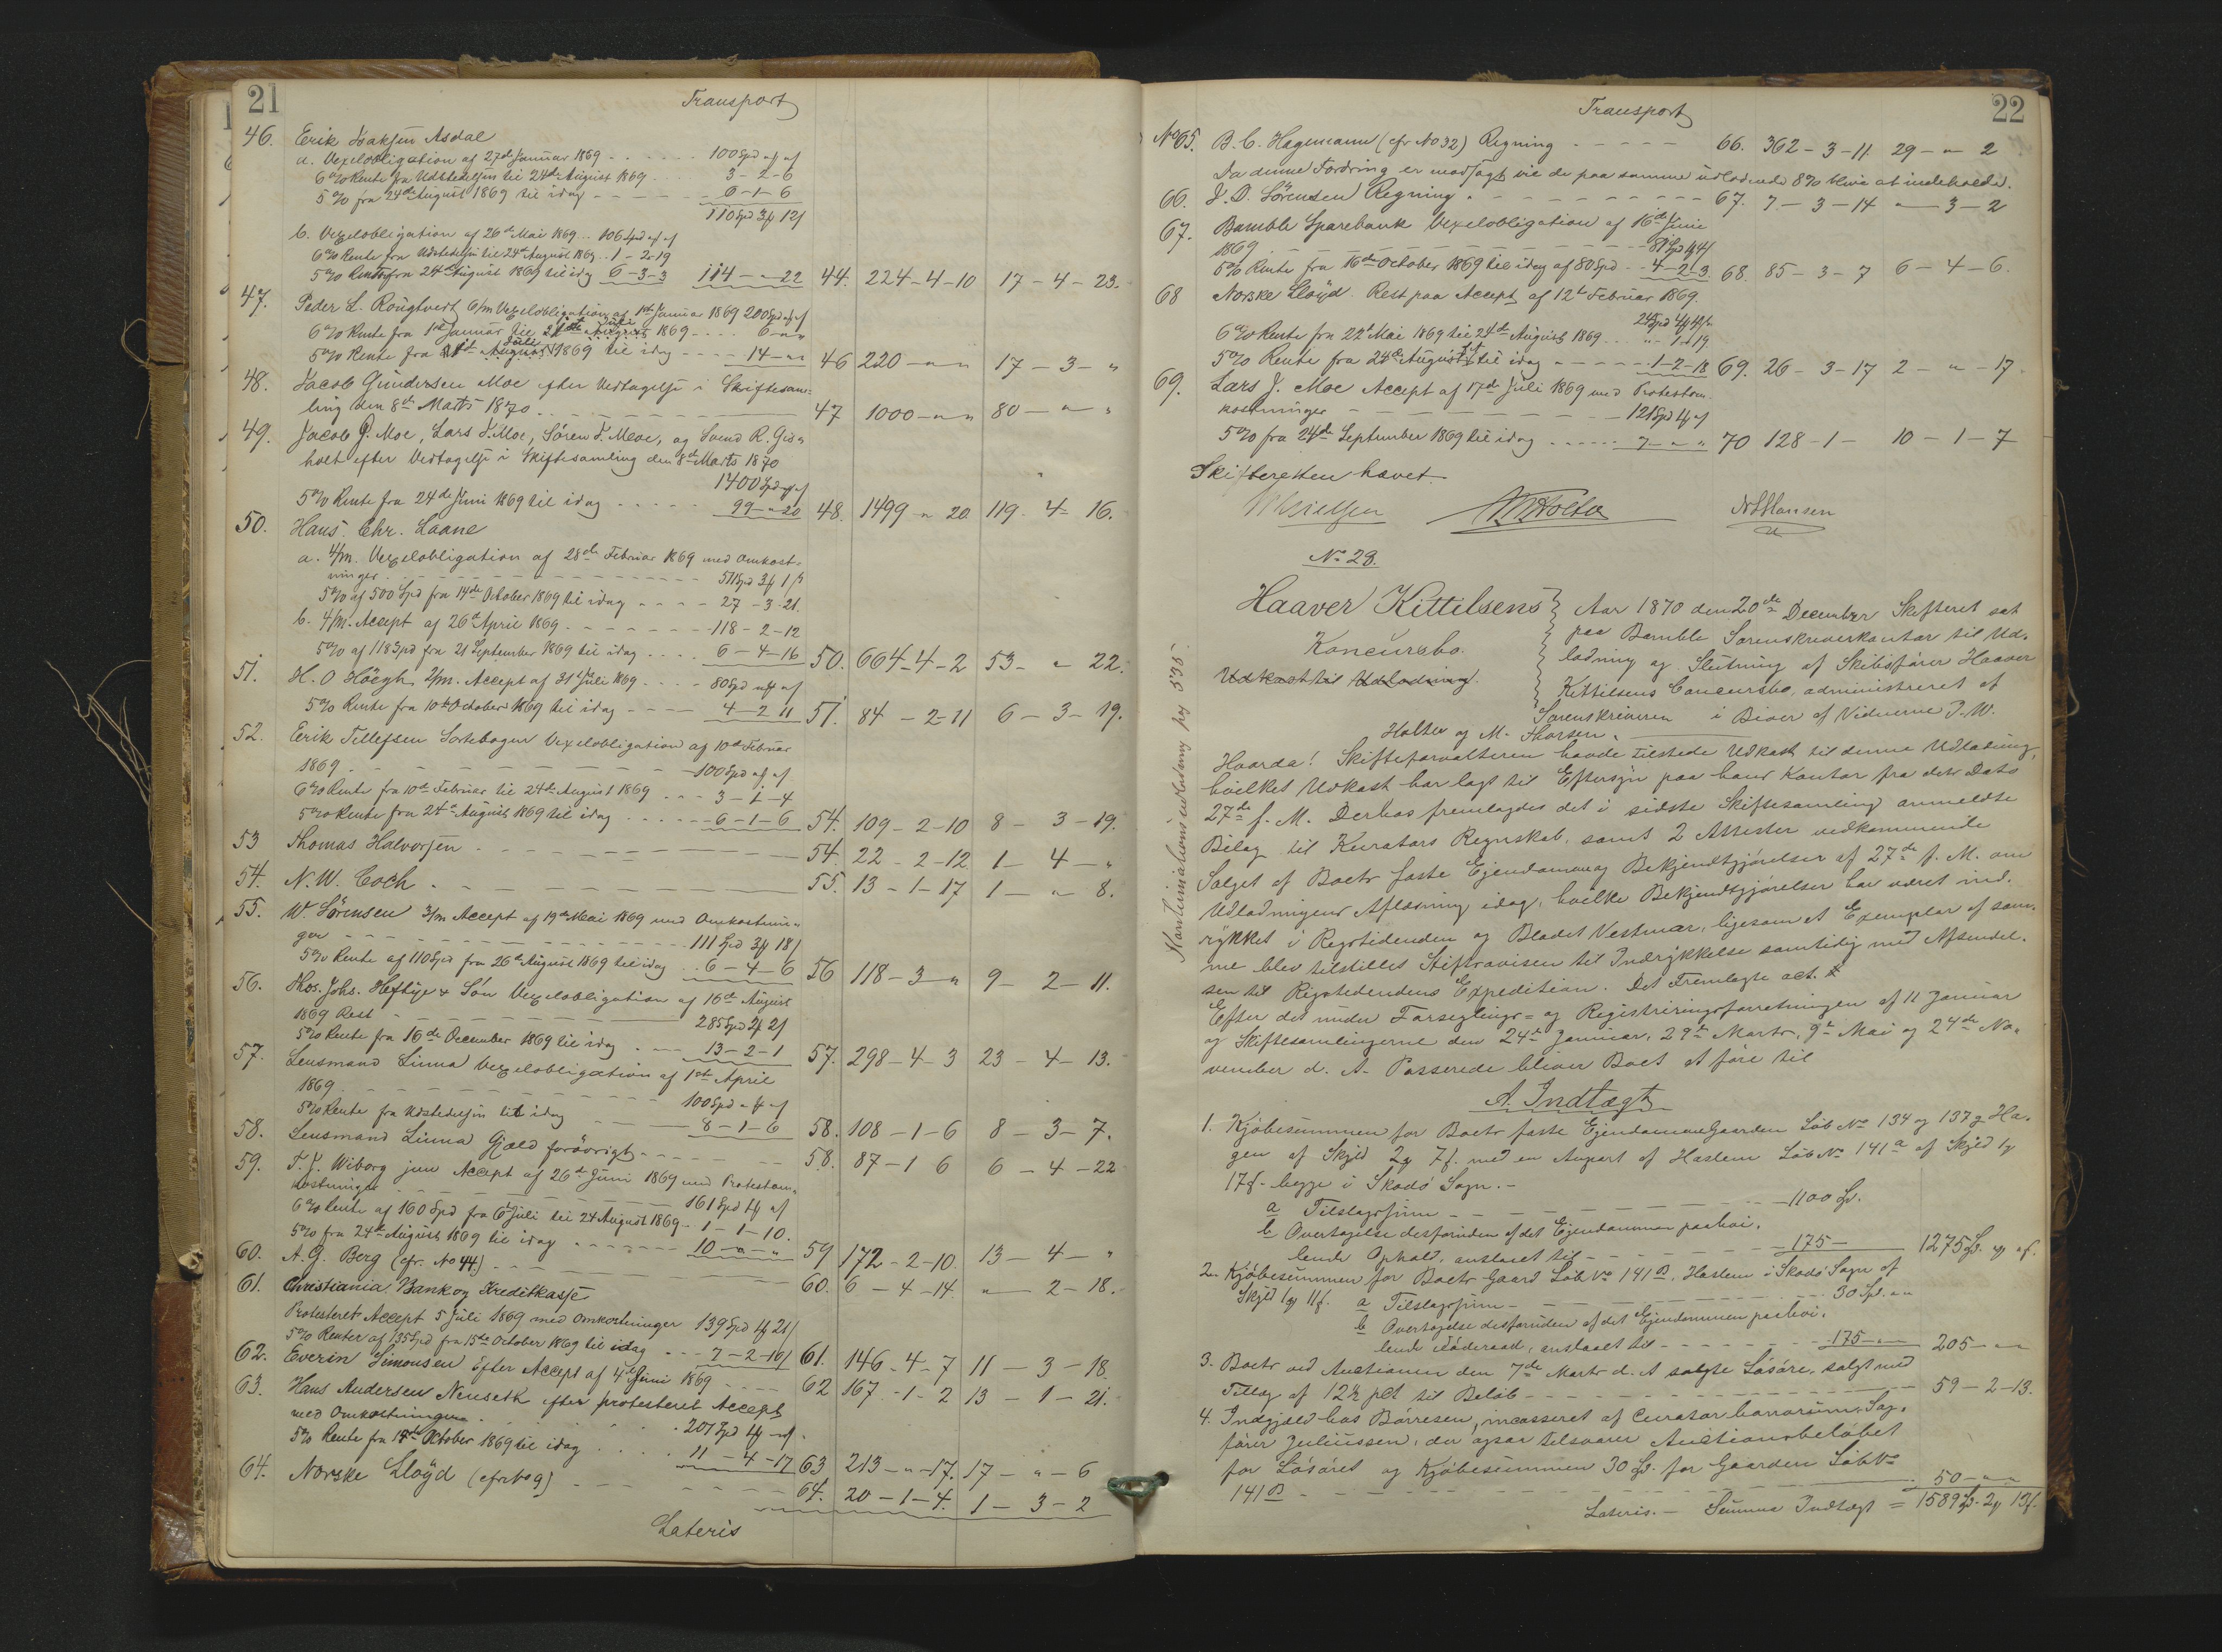 21
Transport
46. Erik Isaksen Asdal
a. Vexelobligation af 27de Januar 1869 - - - - - 100 Spd „ „
6% Rente fra Udstedelsen til 24de August 1869 . . 3 - 2 - 6
5% fra 24de August 1869 til idag - - - - - 6 - 1 - 6
110 Spd 3 12
b. Vexelobligation af 26de Mai 1869 . . 106 Spd „ „
6% Rente fra Udstedelsen til 24de August 1869 . . 1 - 2 - 19
5% Rente fra 24de August 1869 til idag 6 - 3 - 3 114 - „ - 22 44. 224 - 4 - 10 17 - 4 - 23.
47. Peder L. 6/m Vexelobligation af 1ste Januar 1869 200 Spd „ „
6% Rente fra 1ste Januar til 1869 - - - 6 - „ „
5% Rente fra Juli 1869 til idag - - - - 14 - „ „ 46 220 - „ „ 17 - 3 - „
48. Jacob Gundersen Moe efter Vedtagelse i Skiftesam-
ling den 8de Marts 1870 . . - - - - - 47 1000 - „ „ 80 - „ - „
49. Jacob G. Moe, Lars J. Moe, Sören J. Moe, og Svend R.
holt efter Vedtagelse i Skiftesamling den 8de Marts 1870
1400 Spd „ „
5% Rente fra 24de Juni 1869 til idag . . . . . 99 - „ 20 48. 1499 „ 20 119 - 4 - 16.
50. Hans Chr. Laane
a. 4/m. Vexelobligation af 28de Februar 1869 med Omkost-
ninger - - - - - - - - 511 Spd 3 1
5% af 500 Spd fra 14de October 1869 til idag - - - - 27 - 3 - 21.
b. 4/m. Accept af 26de April 1869 . - - - - - - 118 - 2 - 12
5% af 118 Spd fra 21 September 1869 til idag . . . . 6 - 4 - 16 50. 664 - 4 - 2 53 - „ 22.
51. H. O Höegh 2/m. Accept af 31te Juli 1869 . . . . 80 Spd „ „
5% Rente fra 10de October 1869 til idag - - - - 4 - 2 11 51. 84 - 2 - 11 6 - 3 - 19.
52. Erik Tellefsen Vexelobligation af 10de Februar
1869 . - - - - - - - - - 100 Spd „ „
6% Rente fra 10de Februar til 24de August 1869 - - - 3 - 1 - 4
5% Rente fra 24de August 1869 til idag . . . . . - 6 - 1 - 6 54. 109 - 2 - 10 8 - 3 - 19.
53 Thomas Halvorsen . - - - - - - - 54. 22 - 2 - 12 1 - 4 - „
54. N. W. Coch . - - - - - - - - 55. 13 - 1 - 17 1 - „ 8.
55. W. Sörensen 3/m Accept af 19de Mai 1869 med Omkostnin-
ger - - - - - - - - - 111 Spd 3 18
5% Rente af 110 Spd fra 26de August 1869 til idag . . 6 - 4 - 6 56 118 - 3 - „ 9 - 2 - 11.
56. Thos. Johs. Heftye & Sön Vexelobligation af 16de August
1869 Rest - - - - - - 285 Spd 2 2
5% Rente fra 16de December 1869 til idag . - - 13 - 2 - 1 57. 298 - 4 - 3 23 - 4 - 13.
57. Lensmand Linna Vexelobligation af 1ste April
1869 . - - - - - - - 100 Spd „ „
5% Rente fra Udstedelsen til idag - - - 8 - 1 - 6 58. 108 - 1 - 6 8 - 3 - 7.
58. Lensmand Linna Gjæld forövrigt - - - - - - 58. 87 - 1 6 6 - 4 - 22
59. T. J. Wiborg jun Accept af 26de Juni 1869 med Protestom-
kostninger - - - - - - 161 Spd 1 „
6% Rente af 160 Spd fra 6te Juli til 24 August 1869 - 1 - 1 - 10.
5% fra 24de August 1869 til idag - - - - - - 10 - „ - „ 59 172 - 2 - 10. 13 - 4 - „
60. A. G. Berg (cfr. No 44) - - - - - - - 60. 6 - 4 - 14. „ - 2 - 18.
61. Christiania Bank og Kreditkasse
Protesteret Accept 5 Juli 1869 med Omkostninger 139 Spd 1 21
5% Renter af 135 Spd fra 15de October 1869 til idag - - - 7 - 2 - 10 61. 146 - 4 - 7 11 - 3 - 18.
62. Everin Simonsen Efter Accept af 4de Juni 1869 - - - - 62 167 - 1 - 2 13 - 1 - 21.
63. Hans Andersen Nenseth efter protesteret Accept
med Omkostninger . . . . 201 Spd 1 „
5% Rente fra 15de October 1869 til idag . . . . 11 - 4 - 17 63 213 - „ - 17. 17 - „ - 6
64. Norske Lloyd (cfr No 9) - - - - - 64. 20 - 1 - 4. 1 - 3 - 2
Lateris
22
Transport
No 65. B. C. Hagemann (cfr No 32) Regning - - - - - 66. 362 - 3 - 11. 29 - „ 2
Da denne Fordring er modsagt vil de paa samme udlodende 8% blive at indeholde.
66. J. D. Sörensen Regning . - - - - - - - - 67. 7 - 3 - 14 „ - 3 - 2
67. Bamble Sparebank Vexelobligation af 16de Juni
1869 - - - - - - - - 81 Spd 4
5% Rente fra 16de October 1869 til idag af 80 Spd - - 4 - 2 - 3. 68. 85 - 3 - 7 6 - 4 - 6.
68 Norske Lloyd. Rest paa Accept af 12te Februar 1869.
6% Rente fra 22de Mai 1869 til 24de August 1869 . . . „ - 1 - 19
5% Rente fra 24de August til idag - - - - - 1 - 2 - 18 69. 26 - 3 - 17 2 - „ - 17
69. Lars J. Moe Accept af 17de Juli 1869 med Protestom-
kostninger - - - - - - - - 121 Spd 1 „
5% fra 24de September 1869 til idag . . . . . . 7 - „ - „ 70 128 - 1 - 10 - 1 - 7
Skifteretten hævet.
Nielsen Holter Hansen
No 23.
Haaver Kittilsens
Koncursbo.
Udkast til Udlodning.
Aar 1870 den 20de December Skifteret sat
paa Bamble Sorenskriverkontor til Ud-
lodning og Slutning af Skibsförer Haaver
Kittilsens Concursbo, administreret af
Sorenskriveren i Biver af Vidnerne J. W.
Holter og M. Thorsen. -
Hvorda! Skifteforvalteren havde tilstede Udkast til denne Udlodning,
hvilket Udkast har lagt til Eftersyn paa hans Kontor fra dets Dato
27de f. M. Derhos fremlagdes det i sidste Skiftesamling anmeldte
Bilag til Kurators Regnskab, samt 2 Attester vedkommende
Salget af Boets faste Ejendomme og Bekjendtgjörelser af 27de f. M. om
Udlodningens Aflæsning idag, hvilke Bekjendtgjörelser har været ind-
rykket i Rigstidenden og Bladet Vestmar, ligesom et Exemplar af sam-
me blev tilstillet Stiftsavisen til Indrykkelse samtidig med Afsendel-
sen til Rigstidendens Expedition. Det Fremlagte act.
Efter det under Forseglings= og Registreringsforretningen af 11 Januar
og Skiftesamlingerne den 24de Januar, 29de Marts, 9de Mai og 24de No-
vember d. A. Passerede bliver Boet at före til
A. Indtægt
1. Kjöbesummen for Boets faste Ejendomme Gaarden Löb No 134 og 137 Ha-
gen af Skyld 2 7 med en Anpart af Haslem Löb No 141a af Skyld 1
17 begge i Skadö Sogn. -
a Tilslagssum - - - - - - - 1100 Spd.
b Overtagelse desforuden af det Ejendommen paahvi-
lende Ophold, anslaaet til - - - - - 175 - 1275 Spd. „ „.
2. Kjöbesummen for Boets Gaard Löb No 141B, Haslem i Skadö Sogn af
Skyld 1 11 a Tilslagssum - - - - - - 30 Spd. „ „
b Overtagelse desforuden af det Ejendommen paahvi-
lende Föderaad, anslaaet til - - - - - 175 - „ - 205 - „ -
3. Boets ved Auctionen den 7de Marts d. A solgte Lösöre, solgt med
Tillæg af 12½ pCt til Belöb - - - - - - - - 59 - 2 - 13.
4. Indgjæld hos Börresen, incasseret af Curator bonorum, Sag-
förer Juliussen, der ogsaa tilsvarer Auctionsbelöbet
for Lösöret og Kjöbesummen 30 Spd. for Gaarden Löb No
141B - - - - - - - - - 50 - „ -
Lateris. - Summa Indtægt = 1589 Spd. 2 13.